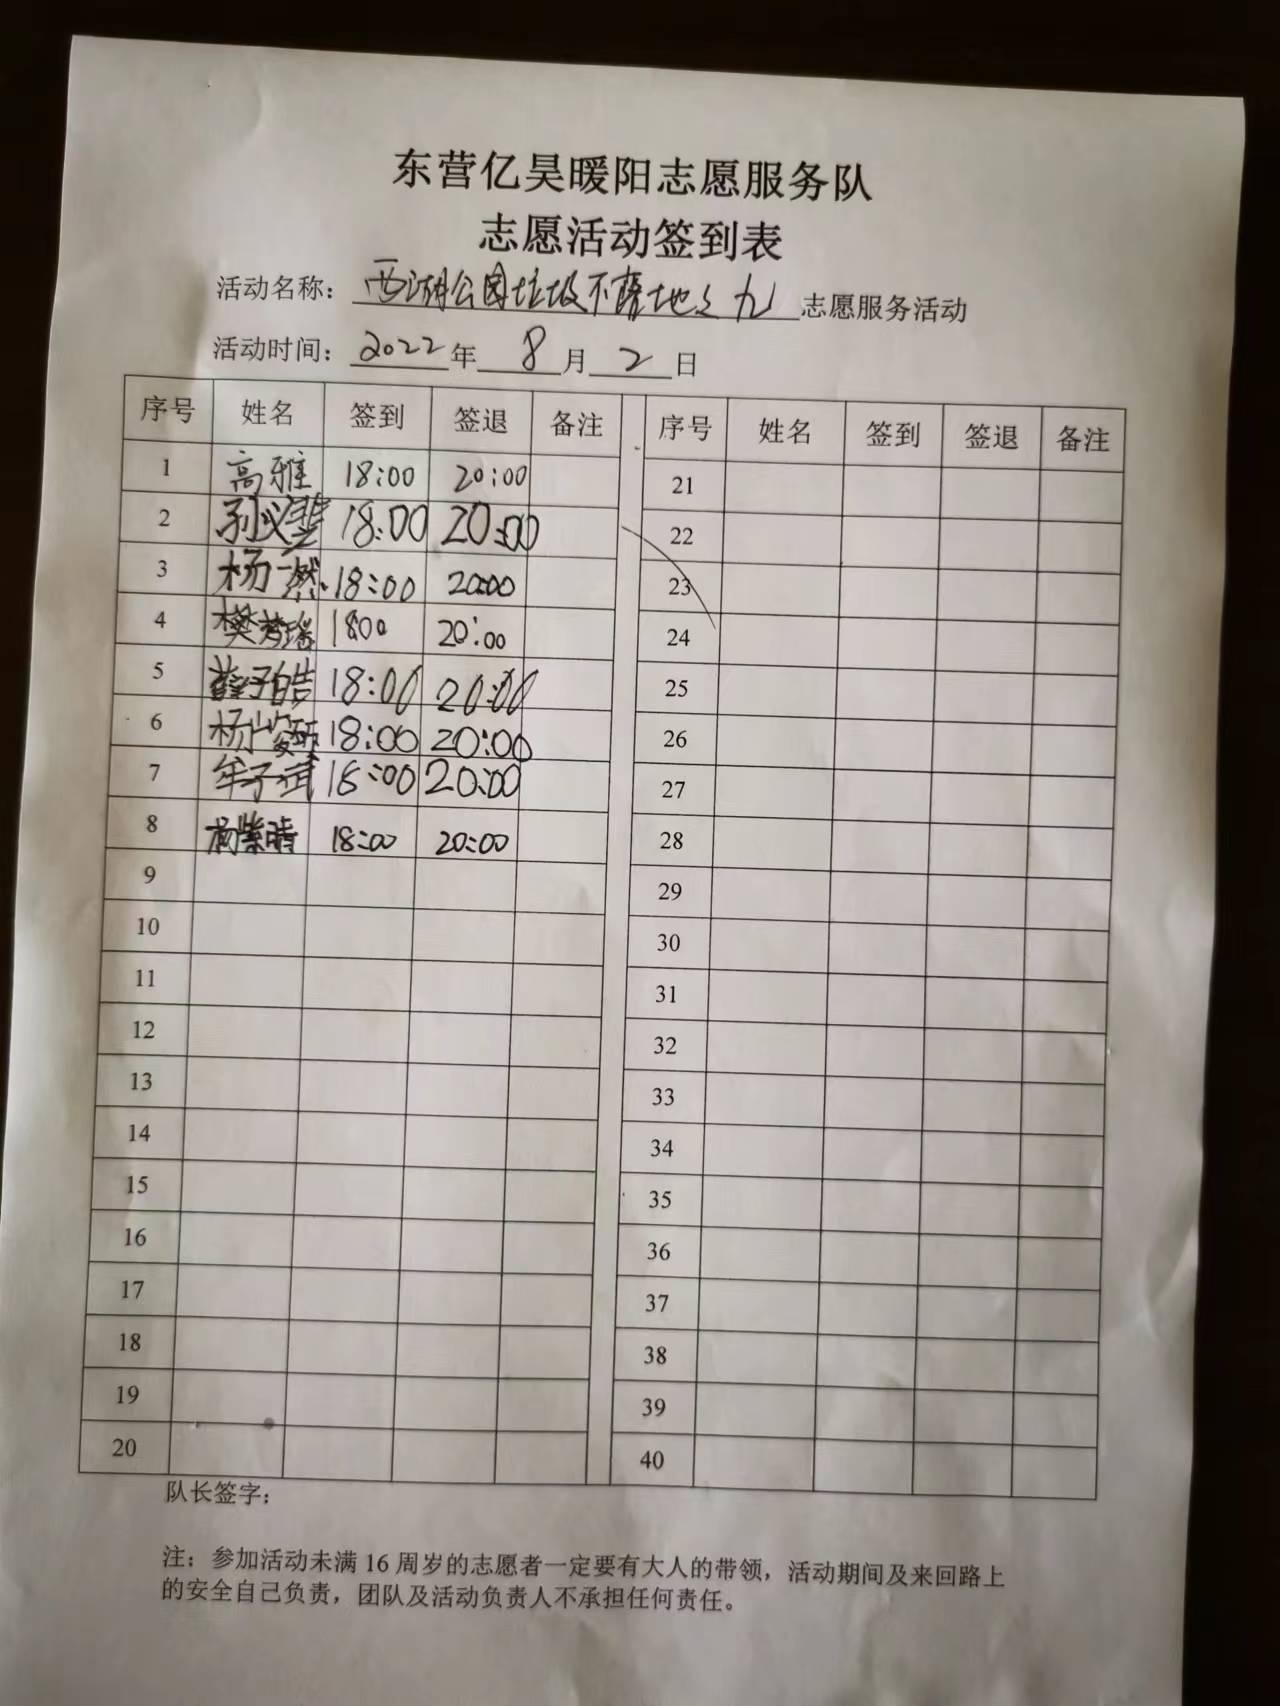 东营亿昊暖阳志愿服务队
志愿活动签到表
活动名称：西湖公园垃圾不落地之九志愿服务活动
活动时间：2022年8月2日
序号 姓名 签到 签退 备注 序号 姓名 签到 签退 备注
1 高雅 18:00 20:00 21
2 18:00 20:00 22
3 杨一然 18:00 20:00 23
4 樊梦瑶 1800 20:00 24
5 薛子皓 18:00 20:00 25
6 18:00 20:00 26
7 牟子斌 18:00 20:00 27
8 杨紫晴 18:00 20:00 28
9 29
10 30
11 31
12 32
13 33
14 34
15 35
16 36
17 37
18 38
19 39
20 40
队长签字：
注：参加活动未满16周岁的志愿者一定要有大人的带领，活动期间及来回路上
的安全自己负责，团队及活动负责人不承担任何责任。